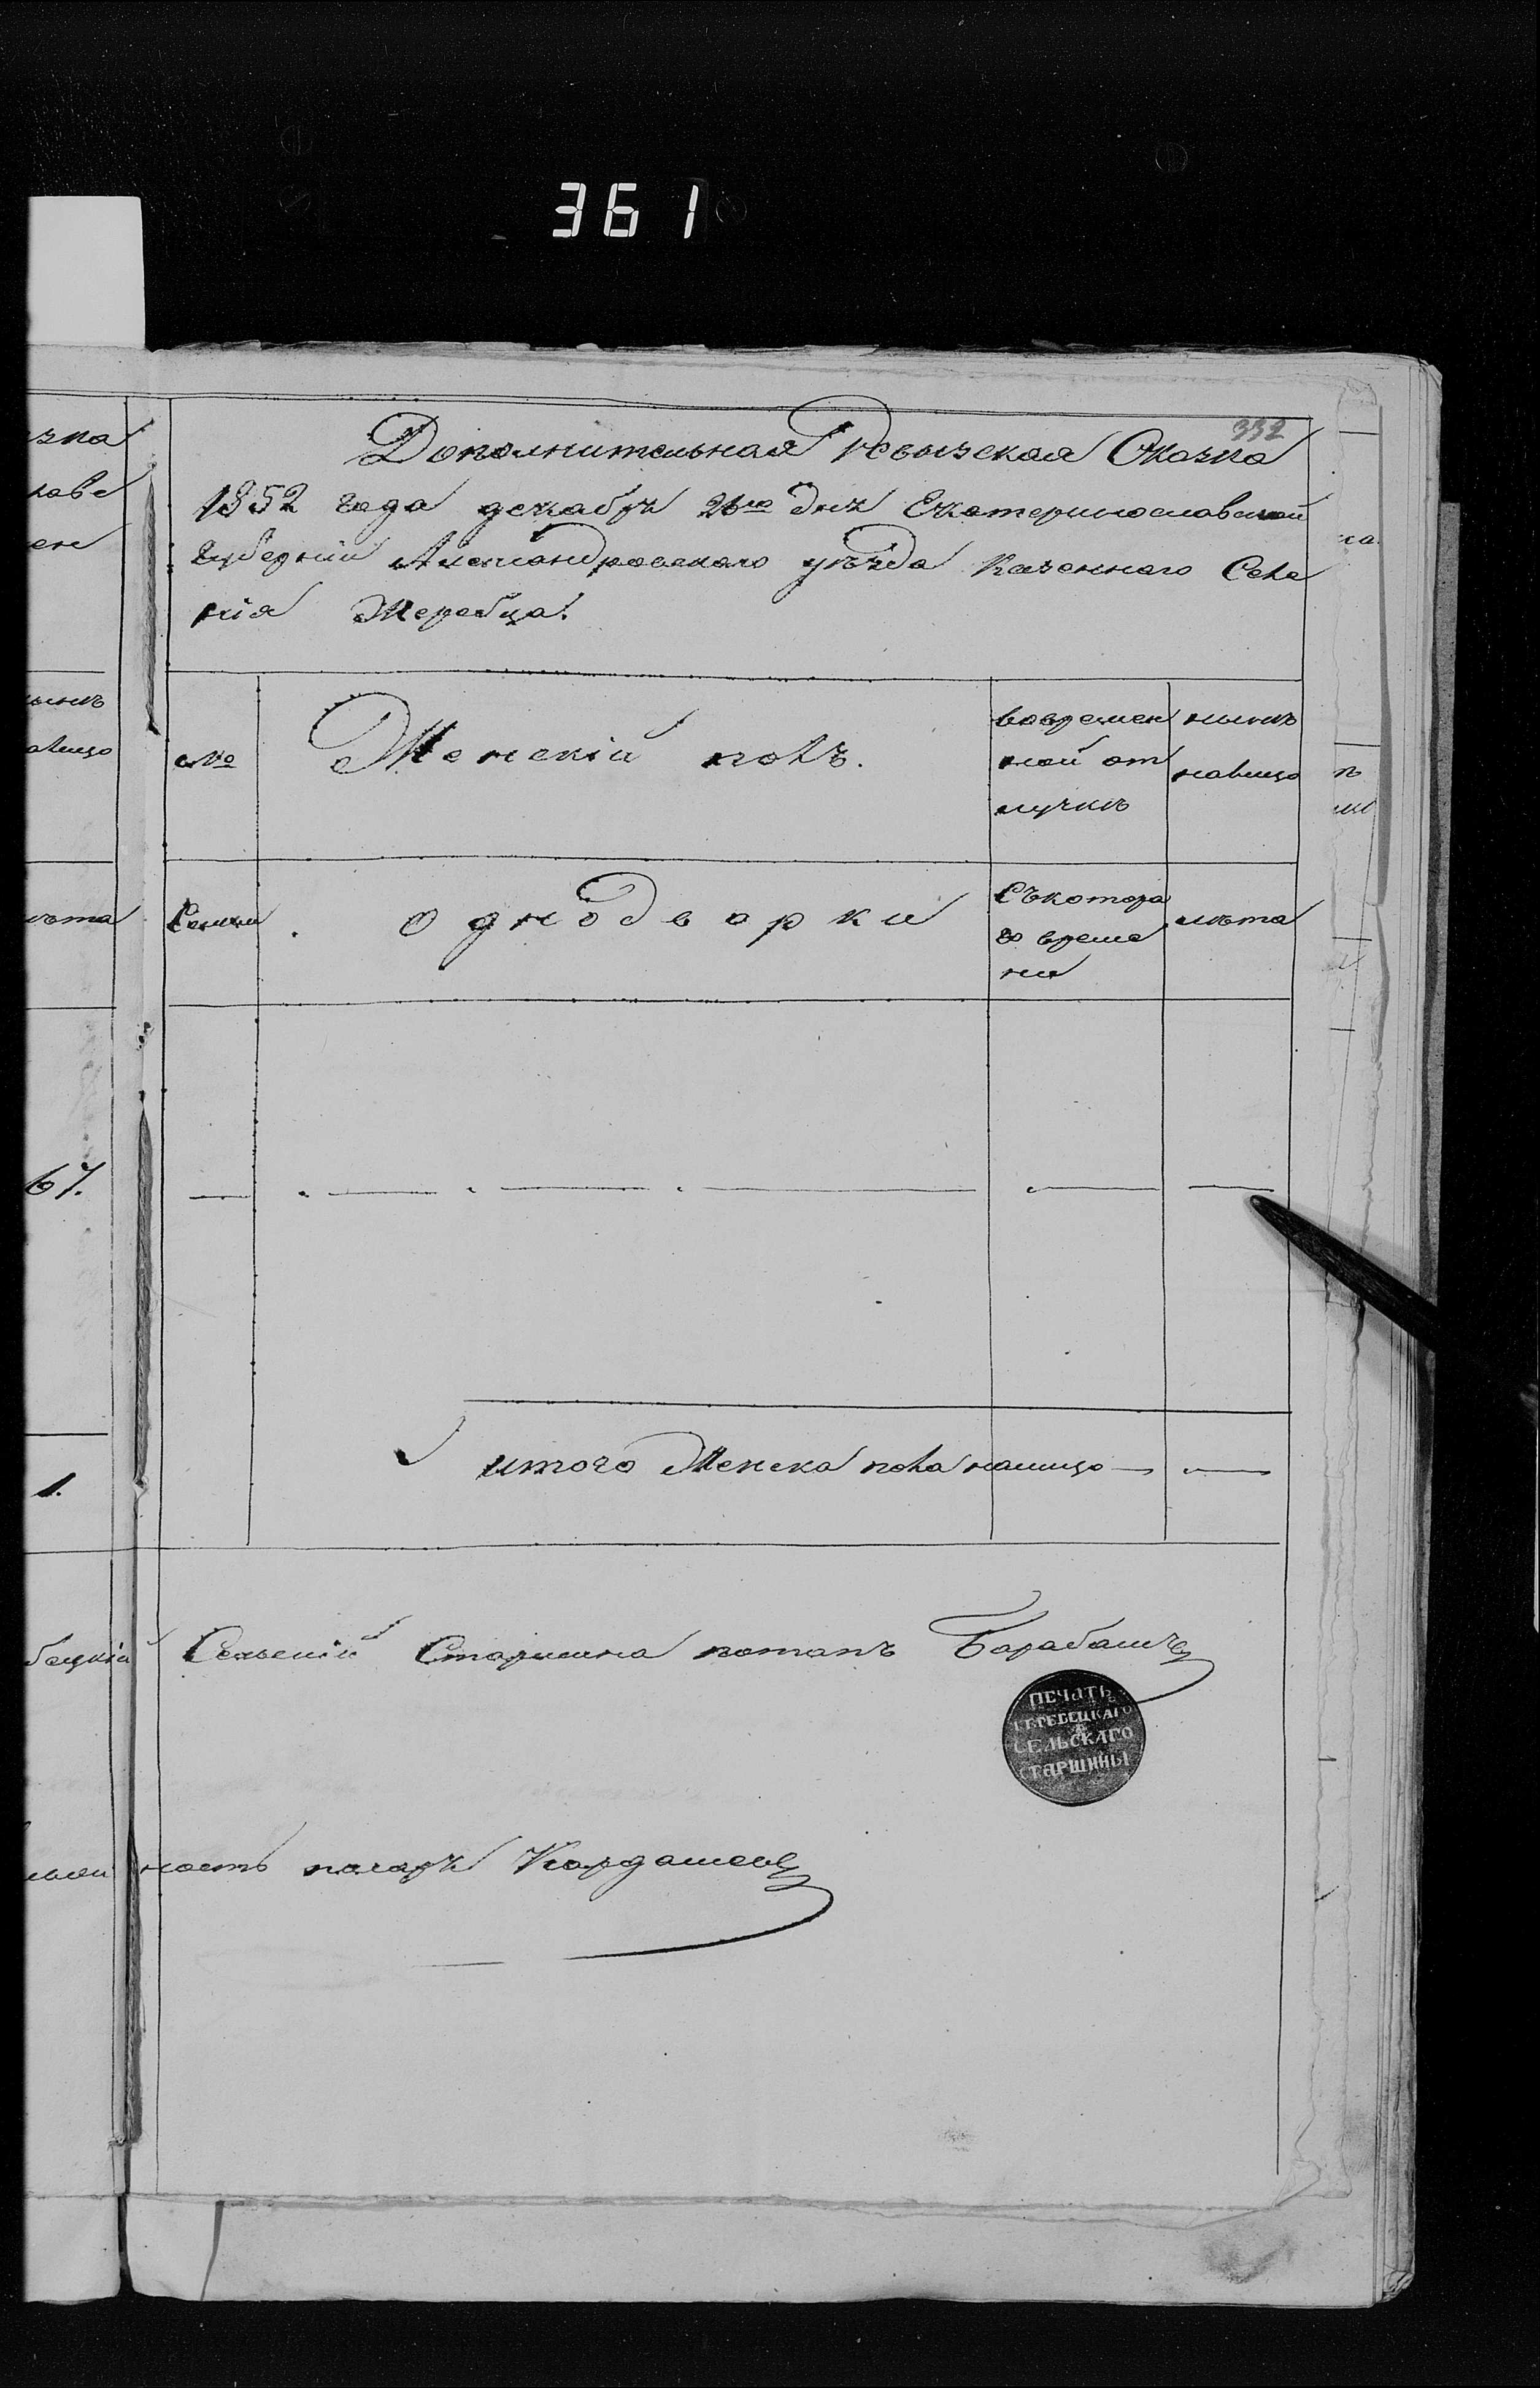 361
332
Дополнительная Ревизская Сказка
1852 года декабря 26го дня Екатеринославской
Губернии Александровского уѣзда Казенного Селе
нія Жеребца.
№ Женскій полъ.
вовремен
ной от
лучкѣ
нынѣ
налицо
Семьи
однодворки
Съкотора
го време
ни
лѣта
67.
1.
итого Женска пола налицо — —
Сельскій Старшина потапъ Барабашъ
ПЕЧАТЬ
ЖЕРЕБЕЦКАГО
СЕЛЬСКАГО
СТАРШИНЫ
ность писарь Кардашевъ